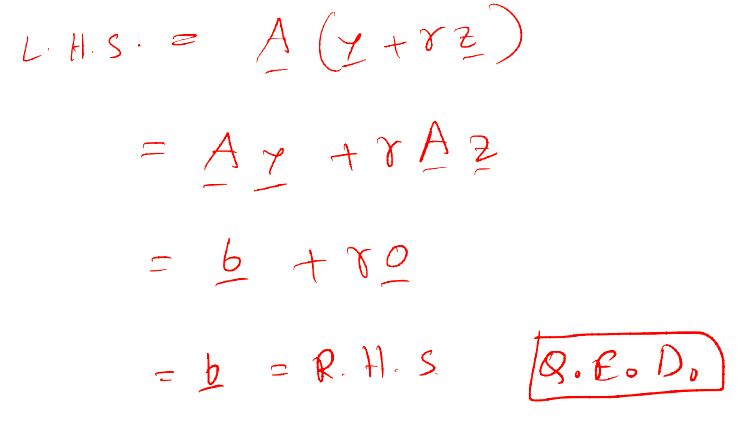 L.H.S. = A (y + γ z)
= A y + γ A z
= b + γ 0
= b = R.H.S. Q.E.D.